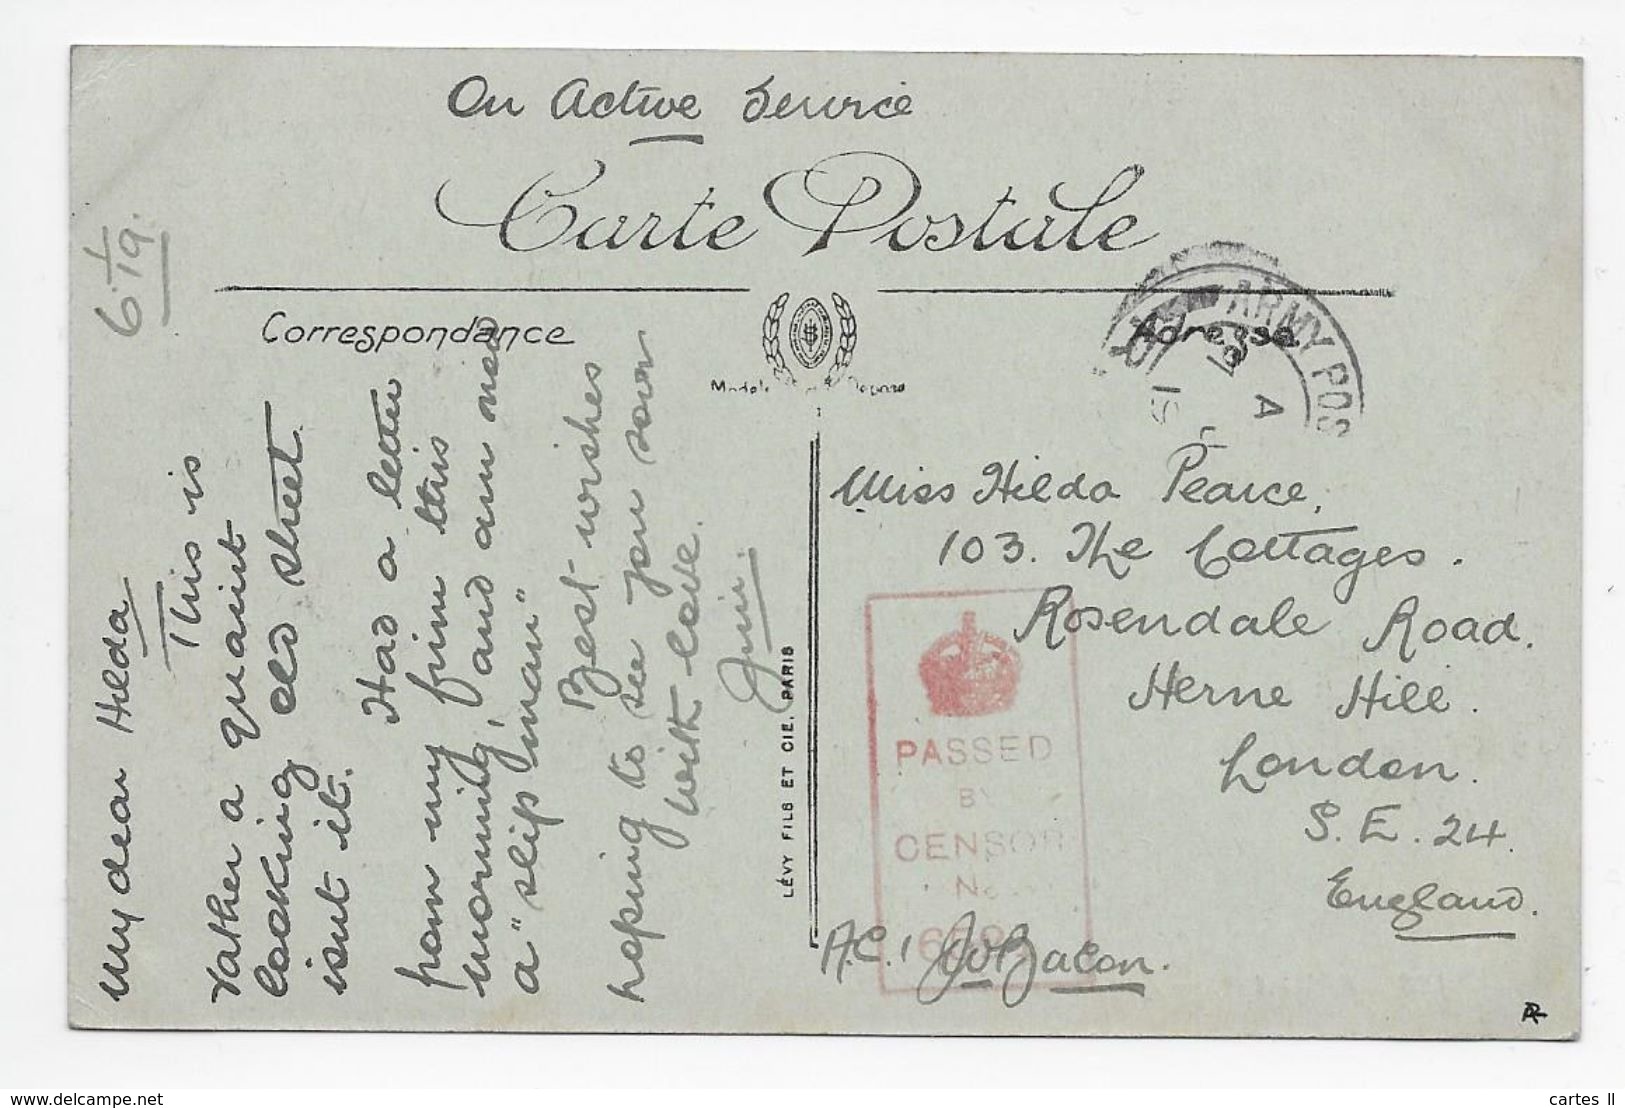 On Active Service
Carte Postale
6.1.19.
Correspondance
Adresse
ARMY POS
A
My dear Hilda
This is
rather a quaint
looking old street
isnt it.
Had a letter
from my
from this
morning, and am now
a "slip man"
Best wishes
hoping to see you soon
with love.
Jim.
LÉVY FILS ET CIE. PARIS
Miss Hilda Pearce,
103. The Cottages.
Rosendale Road.
Herne Hill.
London.
S.E. 24.
England.
PASSED
BY
CENSOR
No
A.C.1 Bacon.
www.delcampe.net
cartes_II